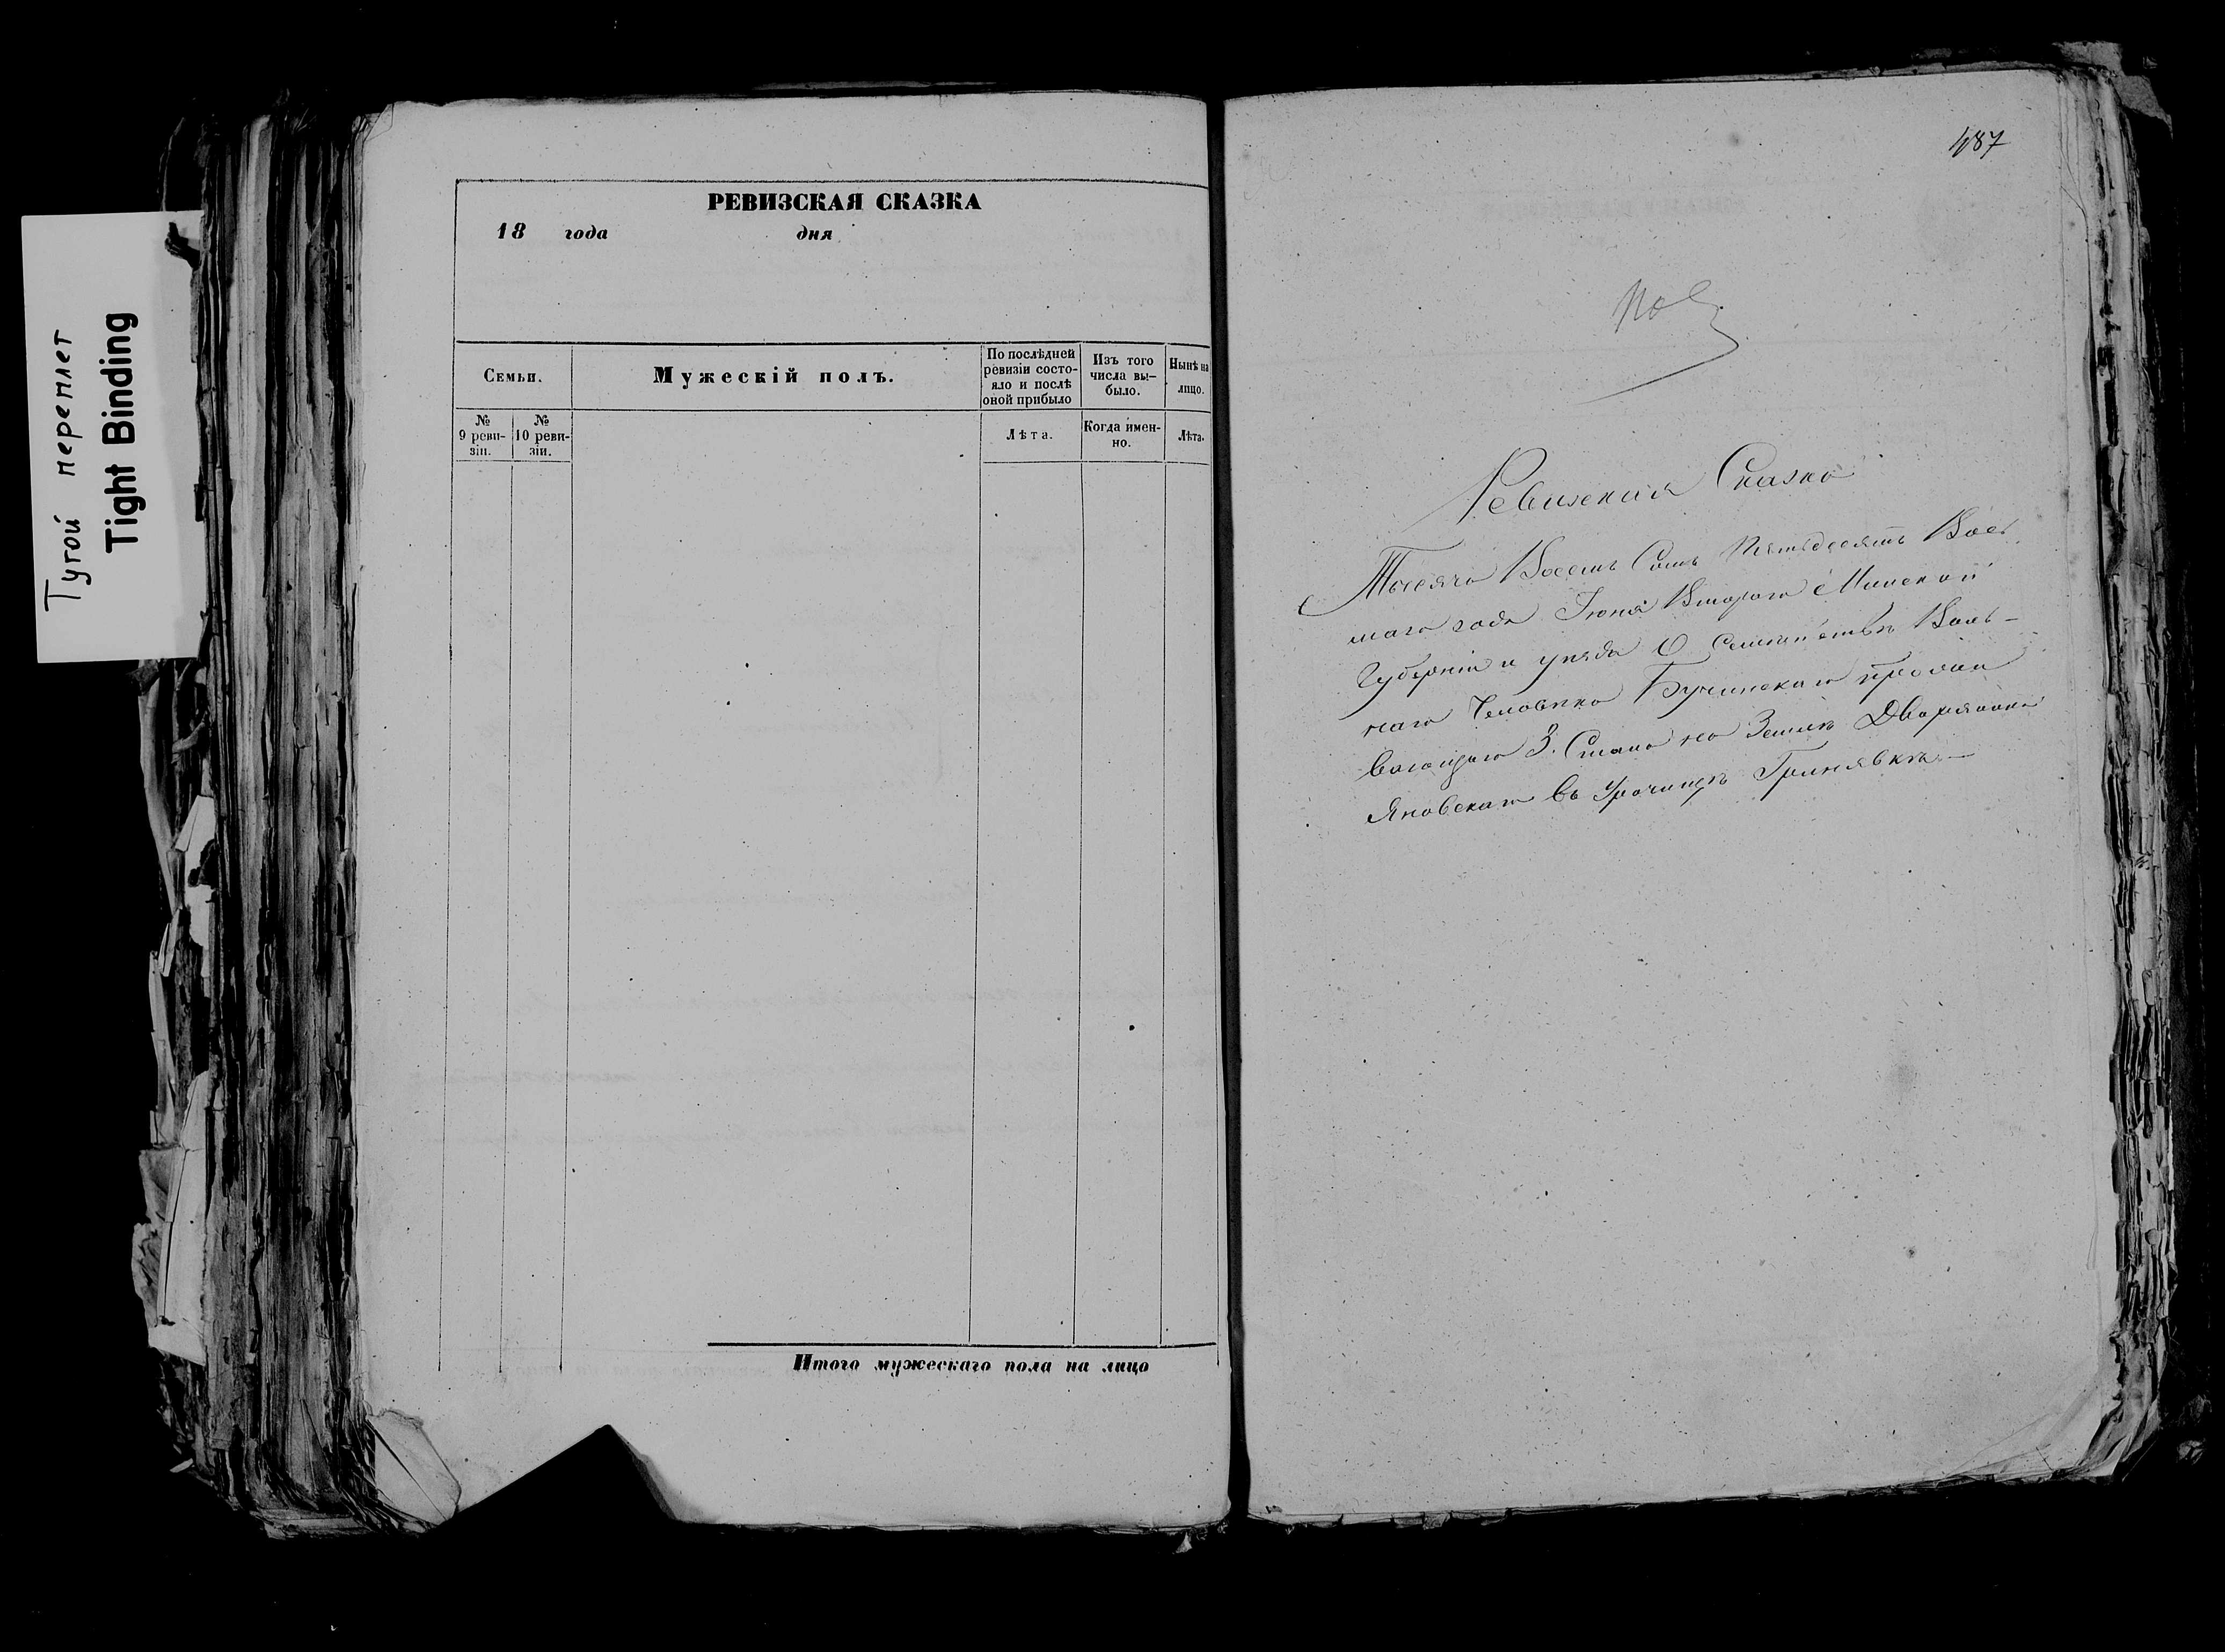 Тугой переплет
Tight Binding
РЕВИЗСКАЯ СКАЗКА
18 года дня
Семьи.
Мужескій полъ.
По послѣдней
ревизіи состо-
яло и послѣ
оной прибыло
Изъ того
числа вы-
было.
Нынѣ на
лицо.
№
9 реви-
зіи.
№
10 реви-
зіи.
Лѣта.
Когда имен-
но.
Лѣта.
Итого мужескаго пола на лицо
487
Ревизская Сказка
Тысяча Восемь Сотъ Пятьдесятъ Вось
маго года Іюня Втораго Минской
Губерніи и уѣзда О Семействѣ Воль-
наго Человѣка Бучинскаго прожи
вающаго 3. Стана на Землѣ Дворянина
Яновскаго въ Урочищѣ Гриневкѣ